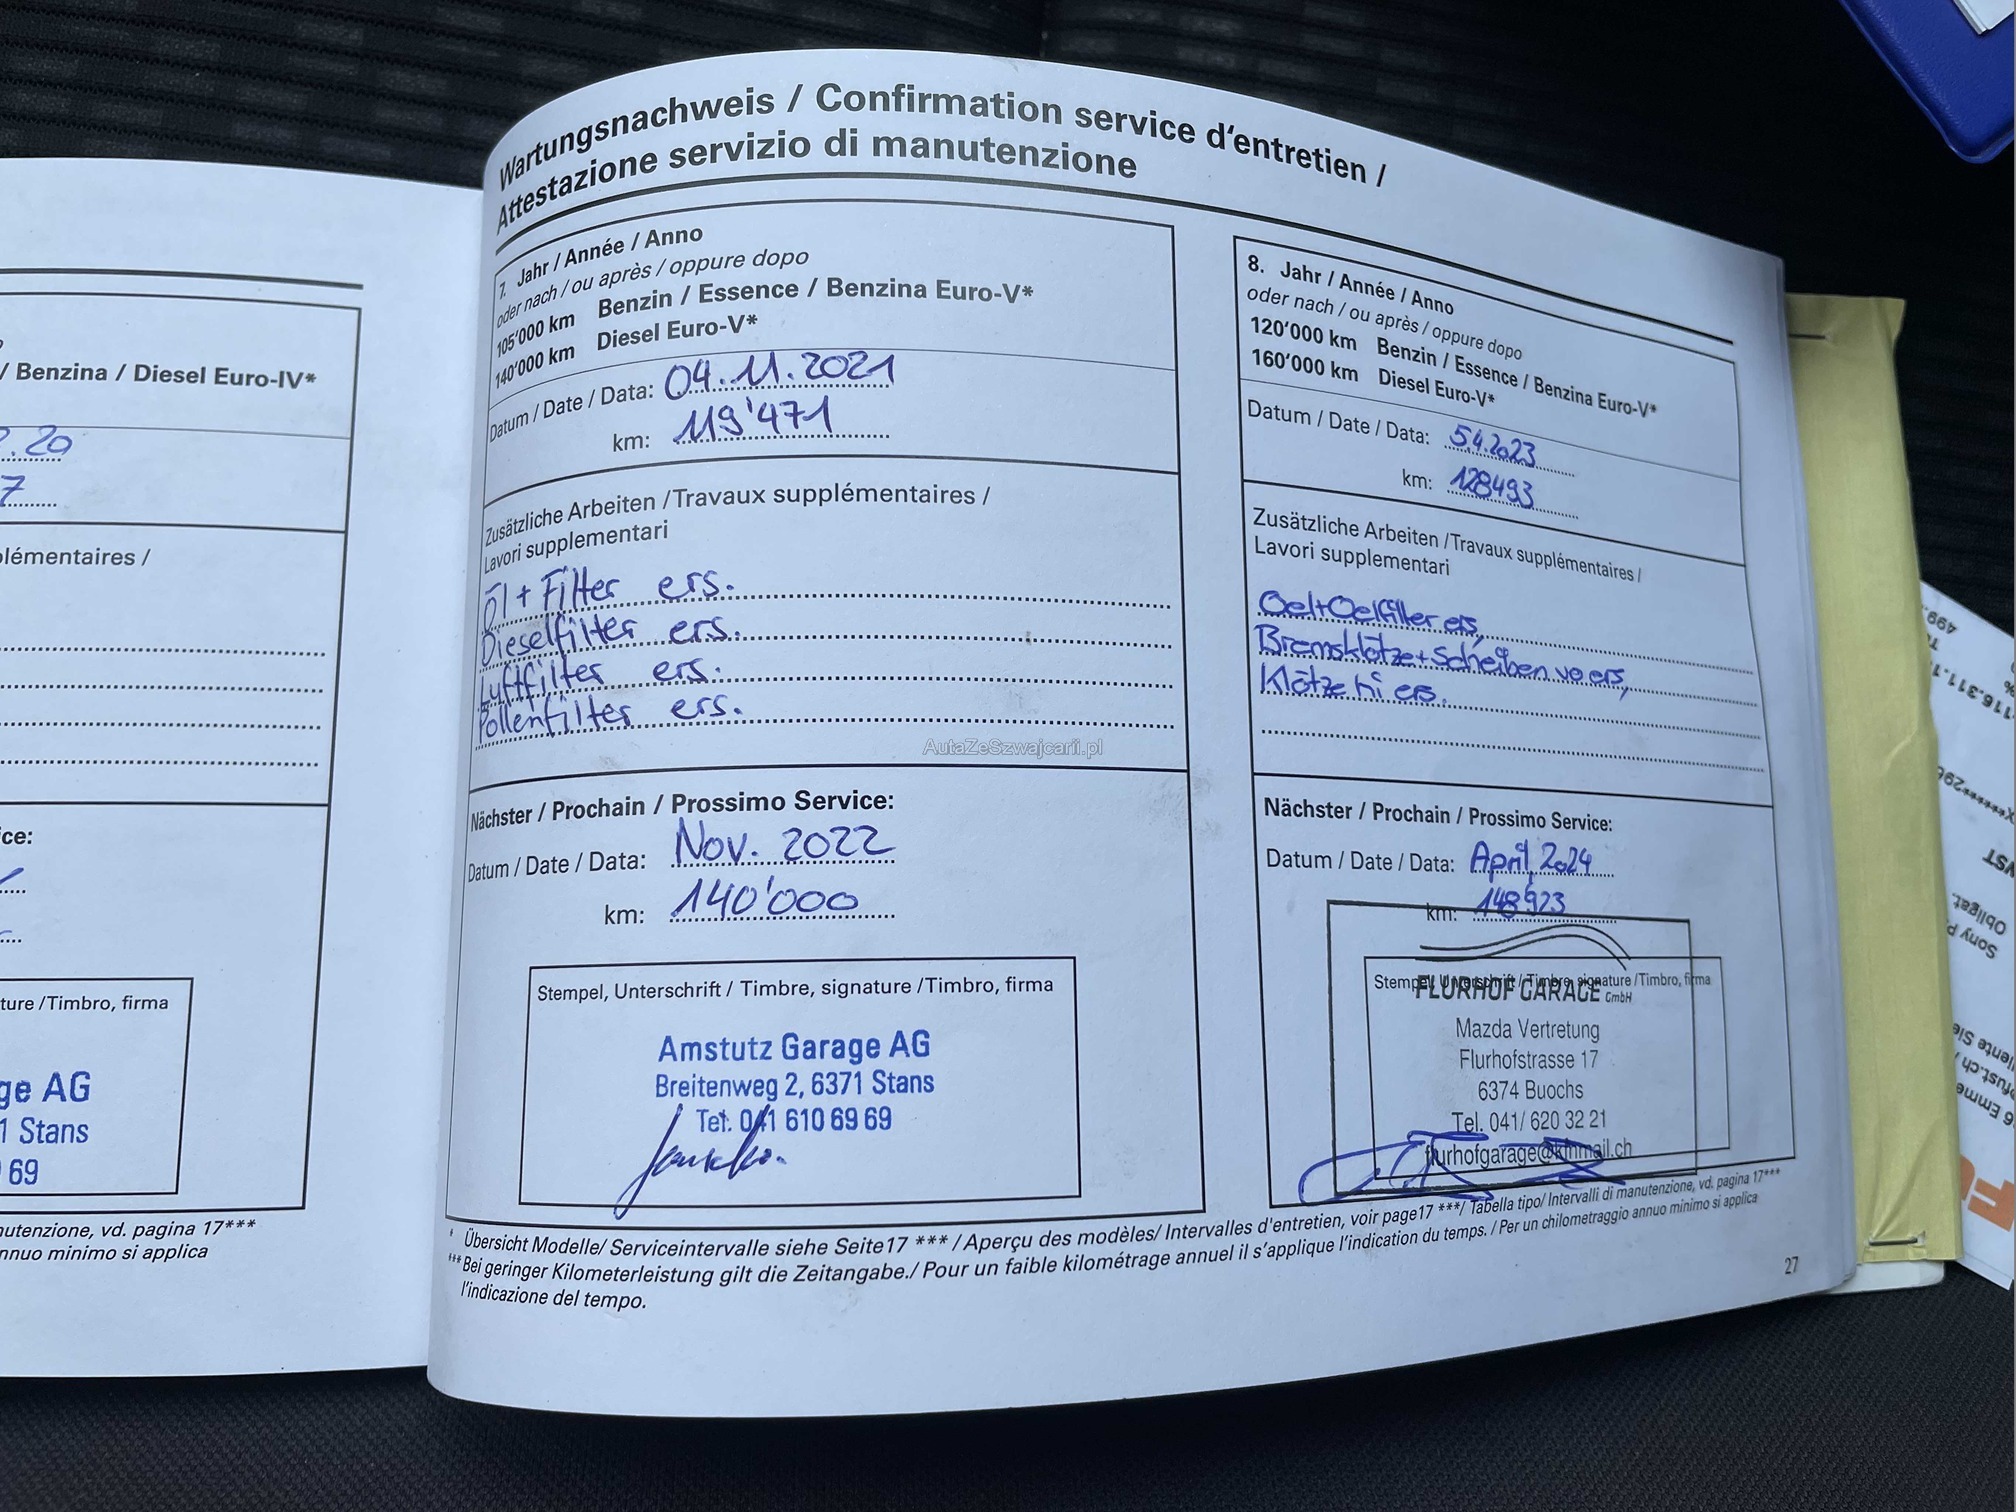 Wartungsnachweis / Confirmation service d'entretien /
Attestazione servizio di manutenzione
/ Benzina / Diesel Euro-IV*
.20
7
plémentaires /
ce:
ture /Timbro, firma
ge AG
1 Stans
69
nutenzione, vd. pagina 17***
nnuo minimo si applica
7. Jahr / Année / Anno
oder nach / ou après / oppure dopo
105'000 km Benzin / Essence / Benzina Euro-V*
140'000 km Diesel Euro-V*
Datum / Date / Data: 04.11.2021
km: 119'471
Zusätzliche Arbeiten /Travaux supplémentaires /
Lavori supplementari
Öl + Filter ers.
Dieselfilter ers.
Luftfilter ers.
Pollenfilter ers.
Nächster / Prochain / Prossimo Service:
Datum / Date / Data: Nov. 2022
km: 140'000
Stempel, Unterschrift / Timbre, signature /Timbro, firma
Amstutz Garage AG
Breitenweg 2, 6371 Stans
Tel. 041 610 69 69
8. Jahr / Année / Anno
oder nach / ou après / oppure dopo
120'000 km Benzin / Essence / Benzina Euro-V*
160'000 km Diesel Euro-V*
Datum / Date / Data: 5.4.2023
km: 128493
Zusätzliche Arbeiten /Travaux supplémentaires /
Lavori supplementari
Oel+Oelfilter ers,
Bremsklötze+Scheiben vo ers,
Klötze hi ers.
Nächster / Prochain / Prossimo Service:
Datum / Date / Data: April 2024
km: 148923
Stempel, Unterschrift / Timbre, signature /Timbro, firma
FLURHOF GARAGE GmbH
Mazda Vertretung
Flurhofstrasse 17
6374 Buochs
Tel. 041/ 620 32 21
flurhofgarage@kfnmail.ch
* Übersicht Modelle/ Serviceintervalle siehe Seite17 *** / Aperçu des modèles/ Intervalles d'entretien, voir page17 ***/ Tabella tipo/ Intervalli di manutenzione, vd. pagina 17***
***Bei geringer Kilometerleistung gilt die Zeitangabe./ Pour un faible kilométrage annuel il s'applique l'indication du temps. / Per un chilometraggio annuo minimo si applica
l'indicazione del tempo.
27
AutaZeSzwajcarii.pl
499.
116.311.1
Obligat.
Sony P